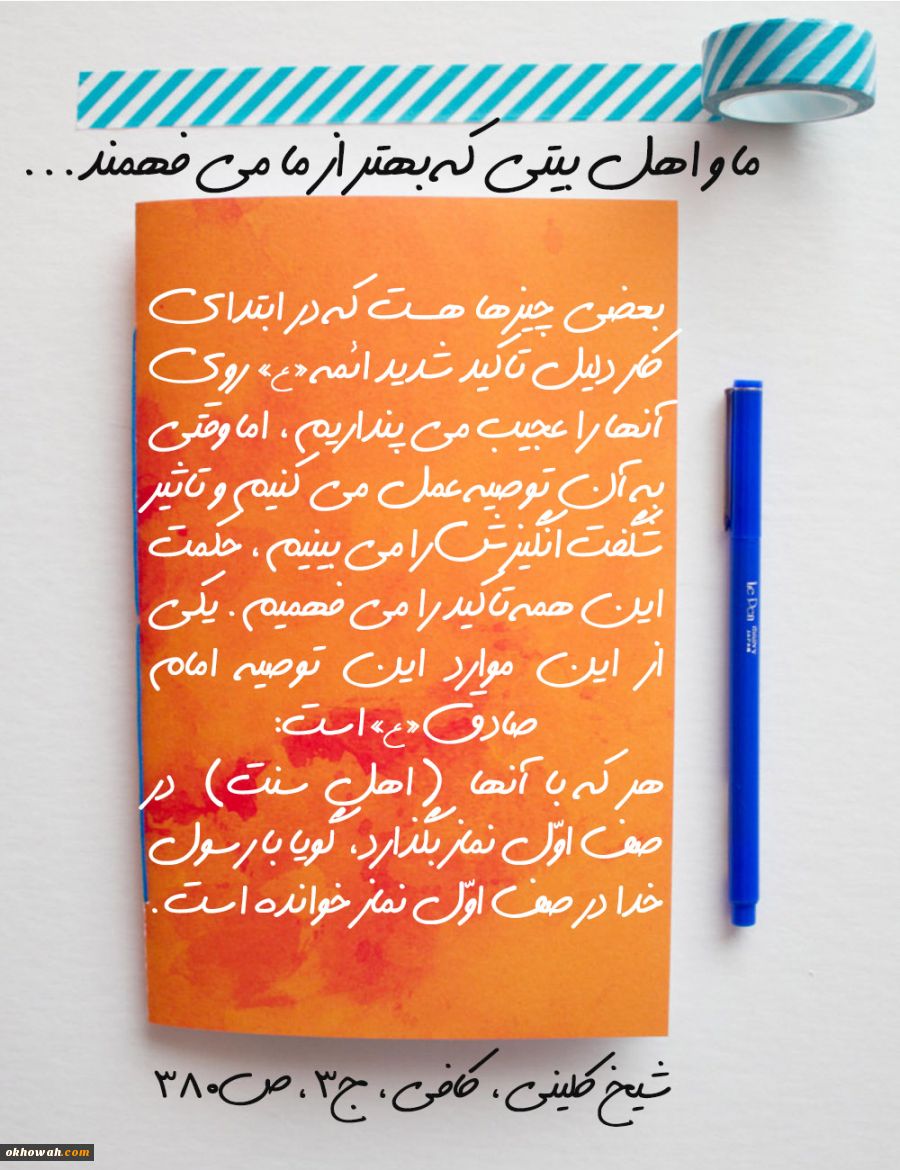 ما و اهل بیتی که بهتر از ما می فهمند...
بعضی چیزها هست که در ابتدای
کار دلیل تاکید شدید ائمه«ع» روی
آنها را عجیب می پنداریم، اما وقتی
به آن توصیه عمل می کنیم و تاثیر
شگفت انگیزش را می بینیم، حکمت
این همه تاکید را می فهمیم. یکی
از این موارد این توصیه امام
صادق«ع» است:
هر که با آنها (اهل سنت) در
صف اوّل نماز بگذارد، گویا با رسول
خدا در صف اوّل نماز خوانده است.
شیخ کلینی، کافی، ج۳، ص۳۸۰
okhowah.com